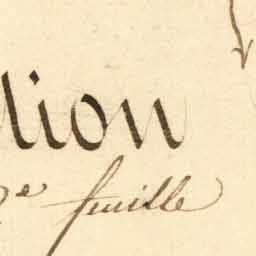 tion
2e feuille